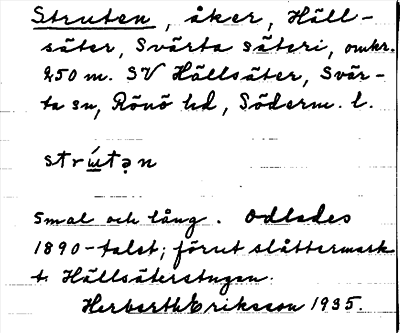 Struten, åker, Häll-
säter, Svärta säteri, omkr.
250 m. SV Hällsäter, Svär-
ta sn, Rönö hd, Söderm. l.
strɯ́tən
Smal och lång. Odlades
1890-talet; förut slåttermark
t. Hällsäterstugan.
Herbert Eriksson 1935.